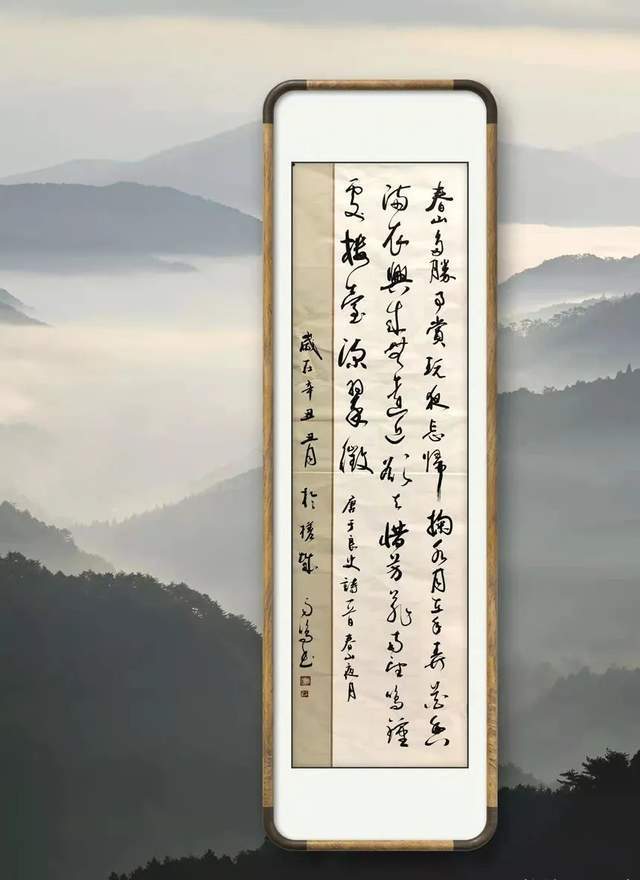 春山多勝事賞玩夜忘歸掬水月在手弄花香
滿衣興來無遠近欲去惜芳菲南望鳴鐘
處樓臺深翠微 唐于良史詩一首春山夜月
歲在辛丑 月於 城 鳴書